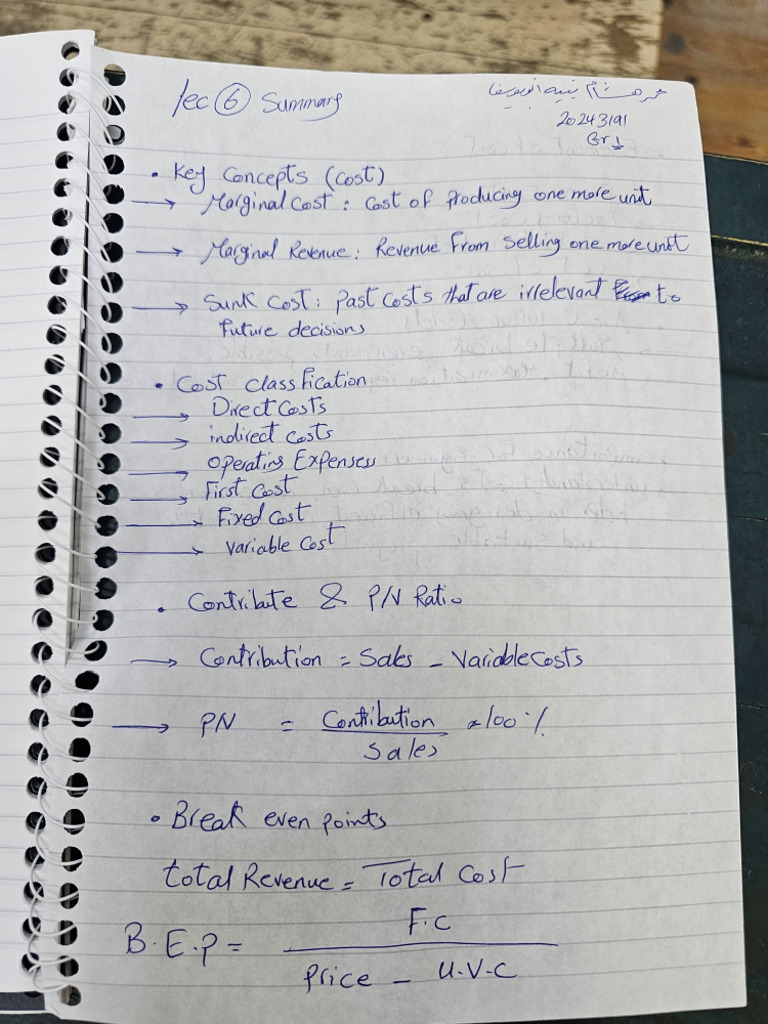 lec ⑥ Summary
20243191
Gr 1
• Key Concepts (Cost)
→ Marginal Cost : Cost of producing one more unit
→ Marginal Revenue : Revenue From Selling one more unit
→ Sunk Cost : Past Costs that are irrelevant to
Future decisions
• Cost classfication
→ Direct Costs
→ indirect Costs
→ Operating Expenses
→ First Cost
→ Fixed Cost
→ Variable Cost
• Contribute & P/V Ratio
→ Contribution = Sales - Variable Costs
→ P/V = Contribution / Sales × 100 %
• Break even points
total Revenue = Total Cost
B.E.P = F.C / Price - U.V.C